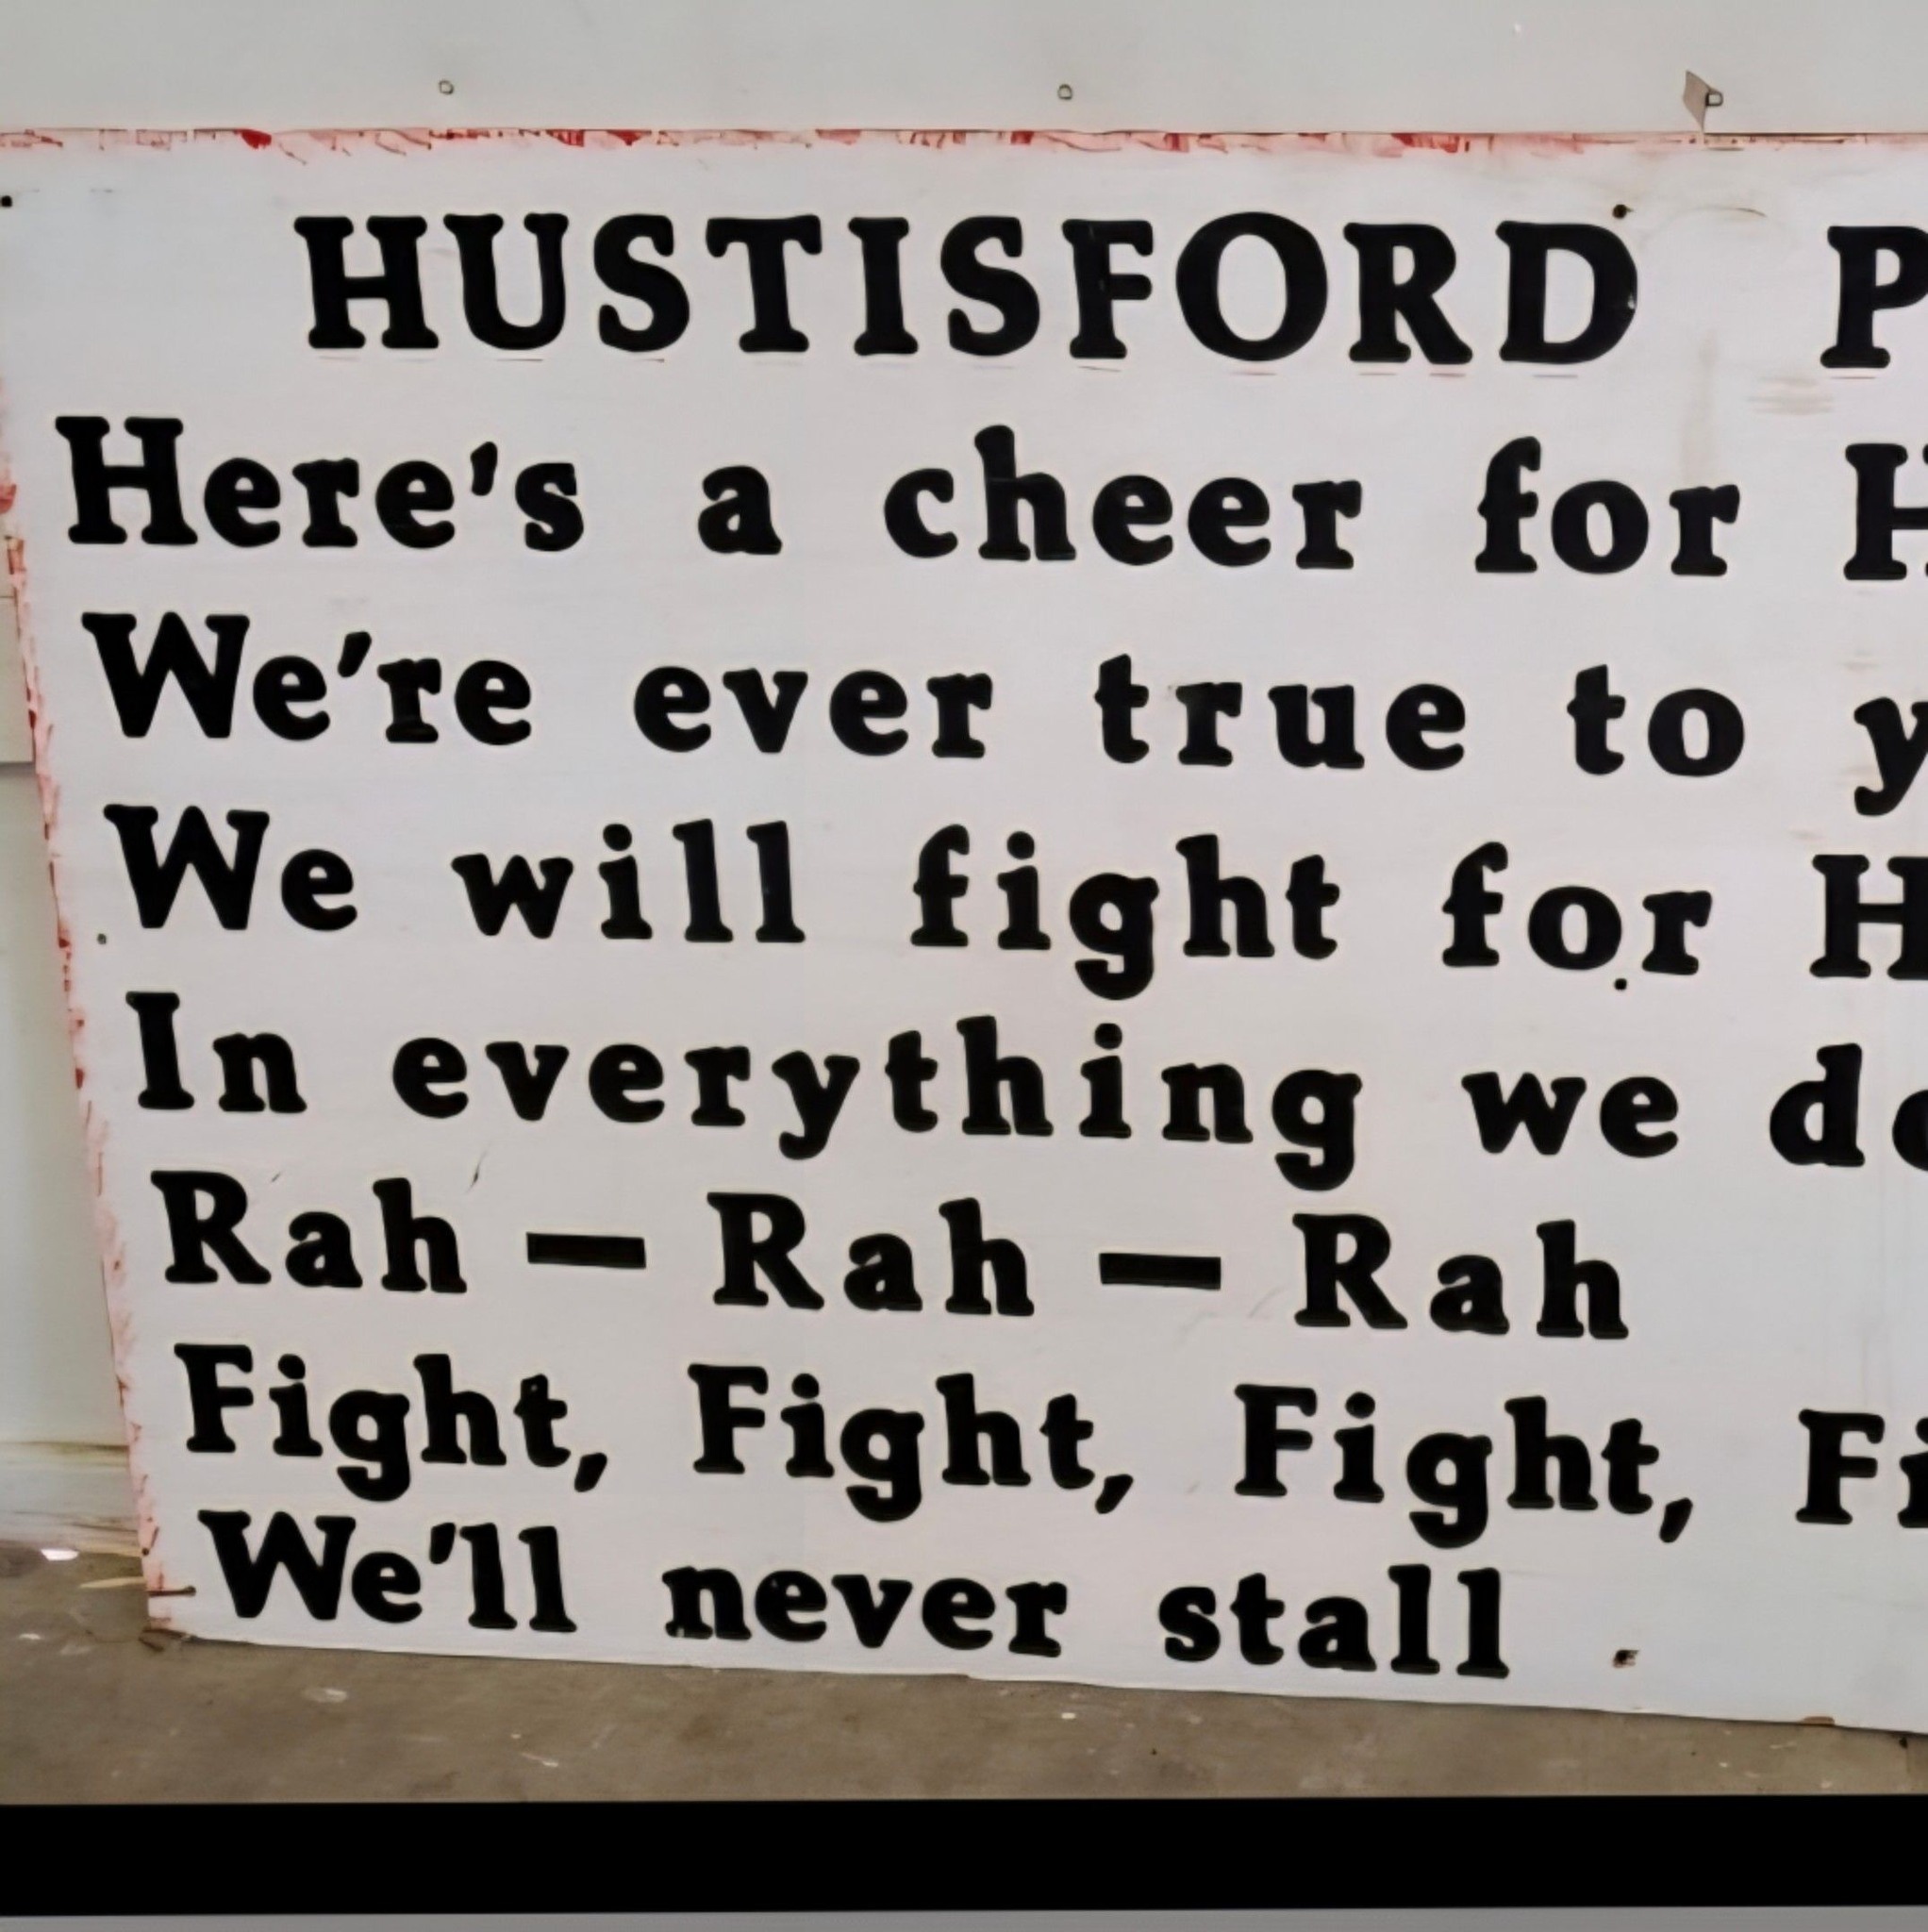 HUSTISFORD P
Here's a cheer for H
We're ever true to y
We will fight for H
In everything we do
Rah — Rah — Rah
Fight, Fight, Fight, Fi
We'll never stall